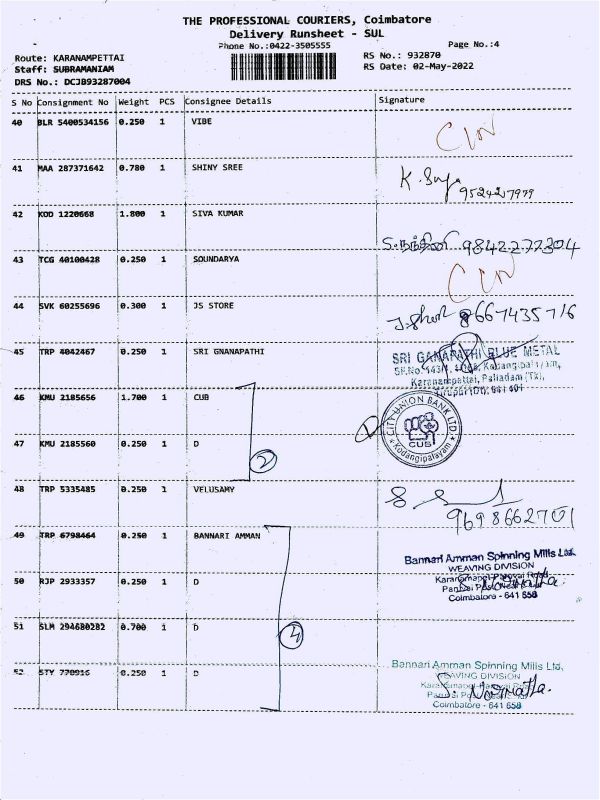 THE PROFESSIONAL COURIERS, Coimbatore
Delivery Runsheet - SUL
Phone No.:0422-3505555
Page No.:4
Route: KARANAMPETTAI
RS No.: 932870
Staff: SUBRAMANIAM
RS Date: 02-May-2022
DRS No.: DCJB93287004
S No Consignment No Weight PCS Consignee Details Signature
40 BLR 5400534156 0.250 1 VIBE
41 MAA 287371642 0.780 1 SHINY SREE
K. Surya 9524427979
42 KOD 1220668 1.800 1 SIVA KUMAR
S. நந்தினி 9842272304
43 TCG 40100428 0.250 1 SOUNDARYA
44 SVK 60255696 0.300 1 JS STORE
8667435716
45 TRP 4042467 0.250 1 SRI GNANAPATHI
SRI GANAPATHI BLUE METAL
SF.No. Kodangipalayam,
Karanampettai, Palladam (Tk),
Tirupur(Dt). 641 401
46 KMU 2185656 1.700 1 CUB
47 KMU 2185560 0.250 1 D
2
CITY UNION BANK LTD
CUB
Kodangipalayam
48 TRP 5335485 0.250 1 VELUSAMY
9698662701
49 TRP 6798464 0.250 1 BANNARI AMMAN
Bannari Amman Spinning Mills Ltd.
WEAVING DIVISION
50 RJP 2933357 0.250 1 D
Coimbatore - 641 658
51 SLM 294680282 0.700 1 D
4
52 STY 770916 0.250 1 D
Bannari Amman Spinning Mills Ltd,
WEAVING DIVISION
Coimbatore - 641 658